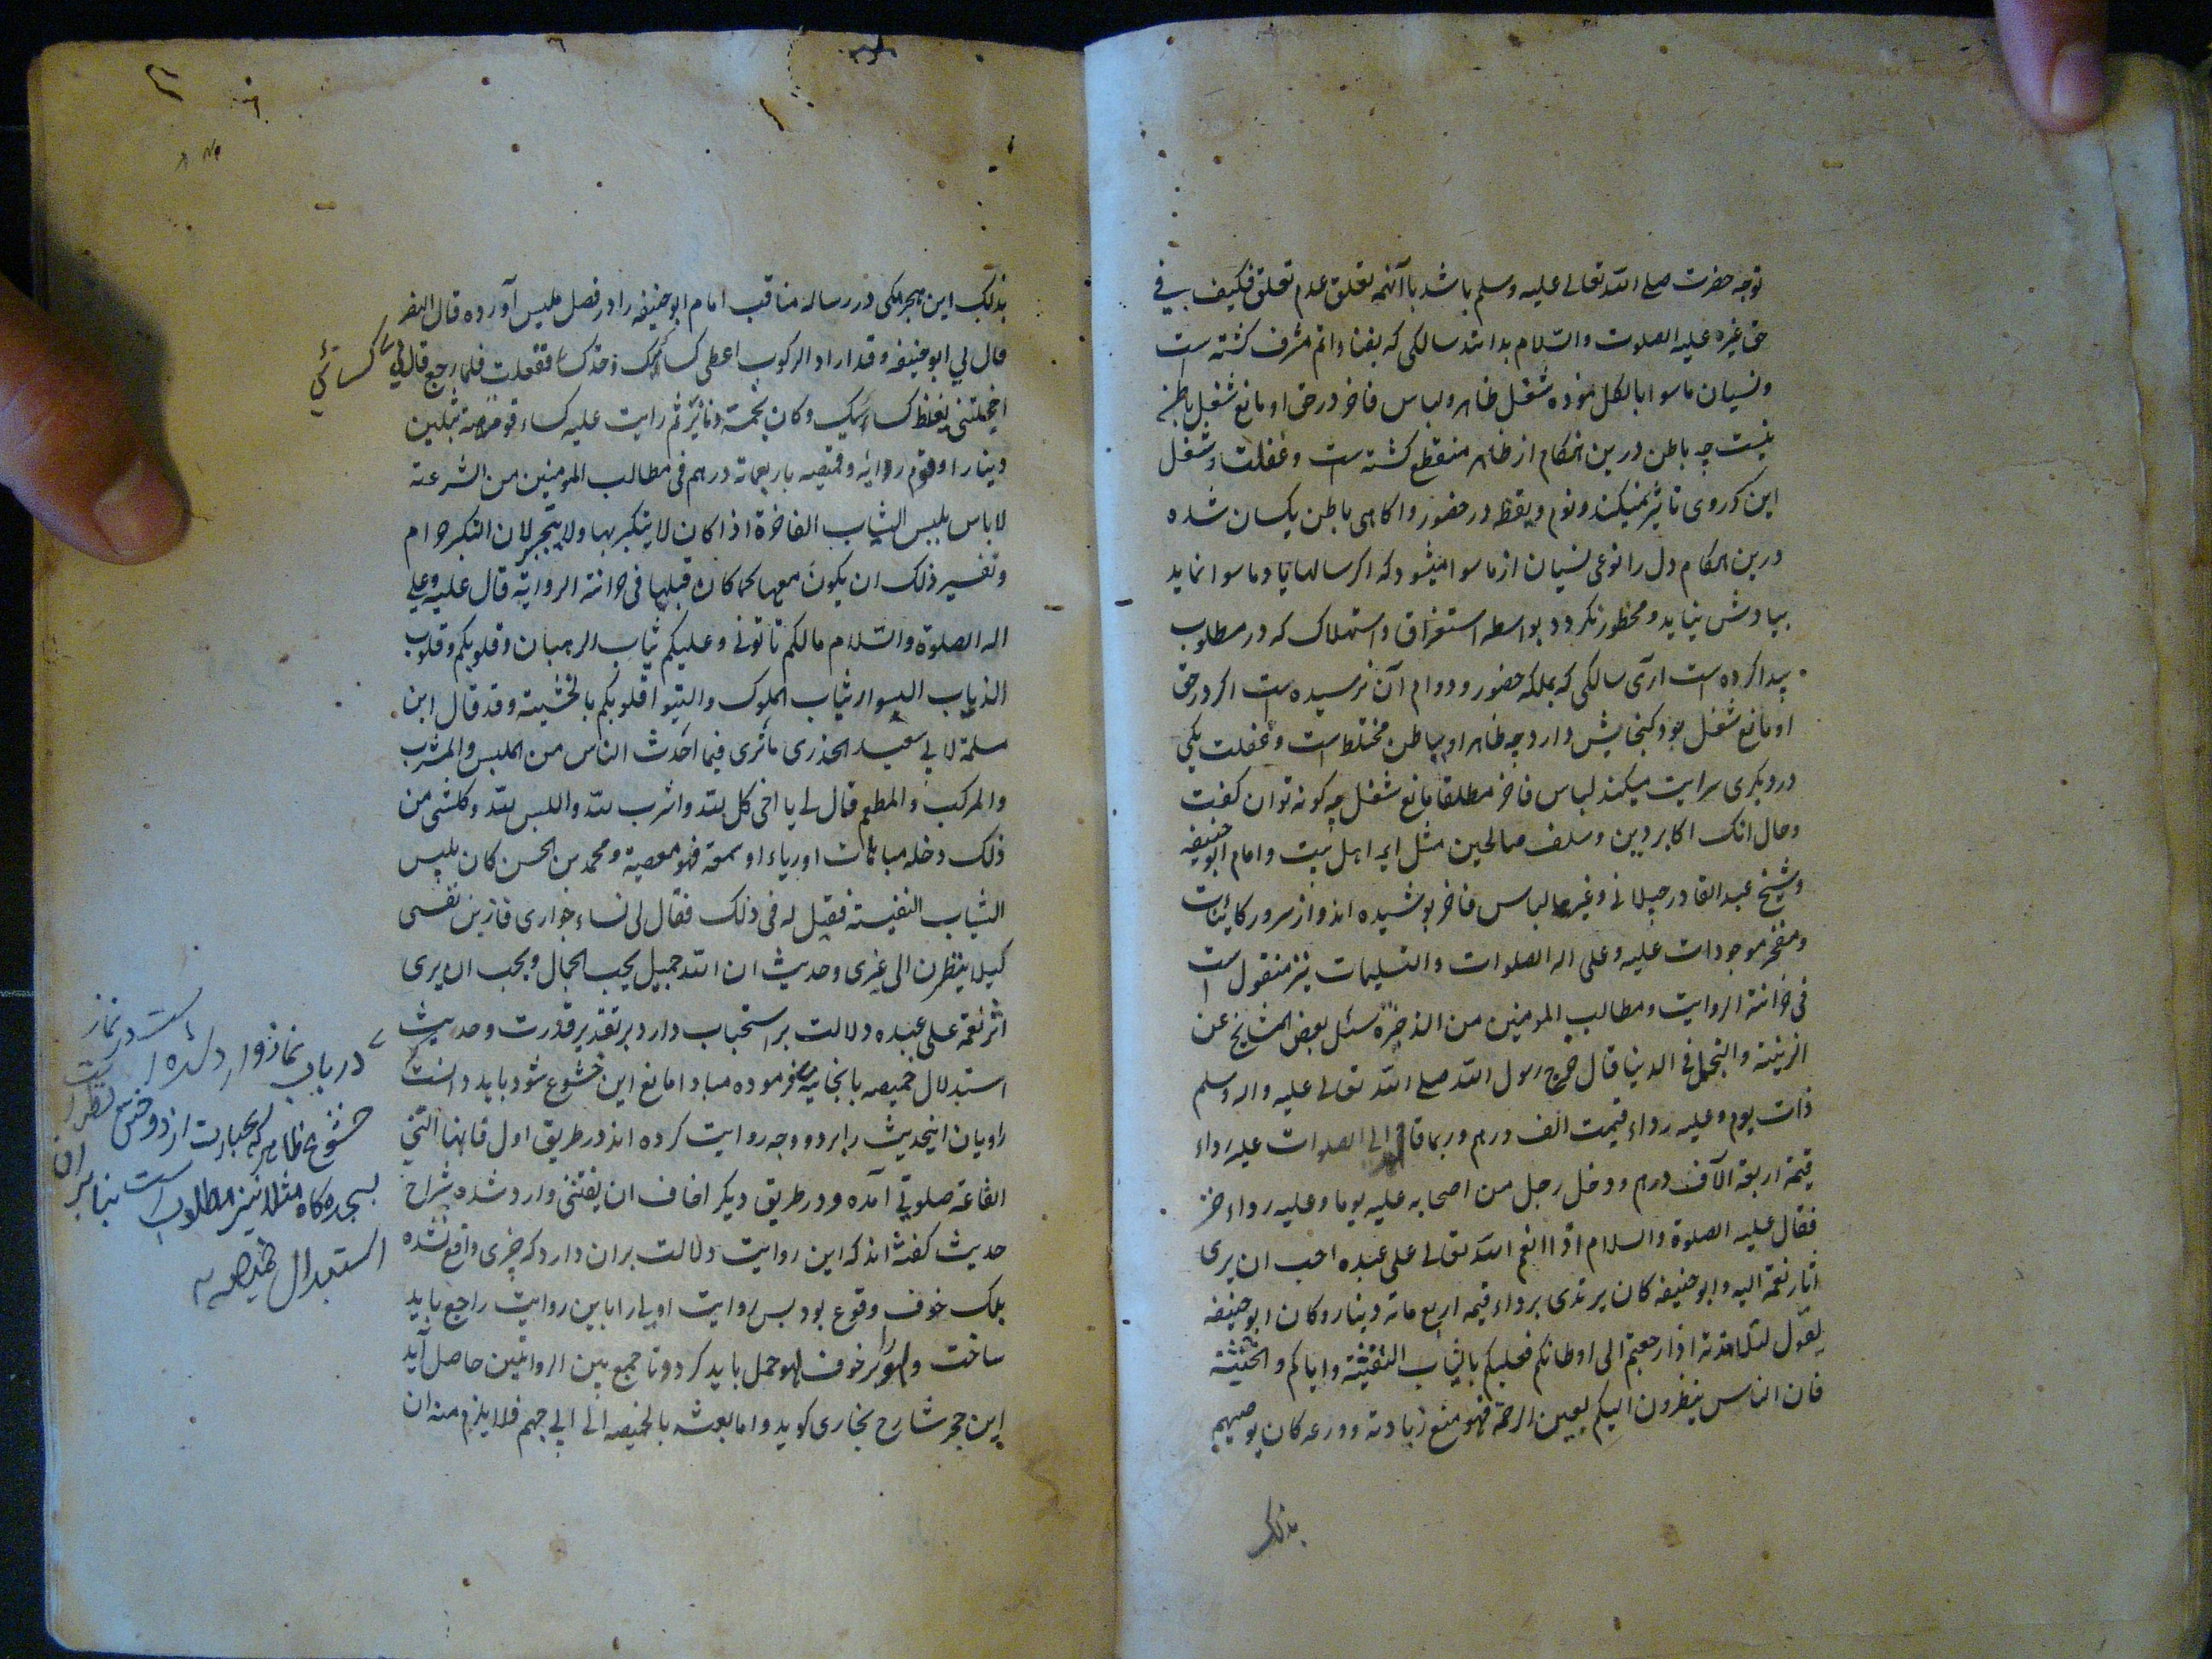 توجه حضرت صلے اللہ تعالے علیہ وسلم باشد باآنہمہ تعلق عدم تعلق فکیف بے فی
حق غیرہ علیہ الصلوت والسلام بدانند سالکی کہ بفنا واتم مشرف کشتہ است
ونسیان ماسوا بالکل نمودہ شغل ظاہر ولباس فاخر در حق او مانع شغل باطن
نیست چہ باطن درین ہنکام از ظاہر منقطع کشتہ است وغفلت وشغل
این در وی تاثیر نمیکند ونوم ویقظہ در حضور واکاہی باطن یکسان شدہ
درین ہنکام دل را نوعی نسیان از ماسوا میشود کہ اکر سالہا یاد ماسوا نماید
بیادش نیاید ومحظور نکردد بواسطہ استغراق واستہلاک کہ در مطلوب
پیدا کردہ است آری سالکی کہ بملکہ حضور ودوام آن نرسیدہ است اکر در حق
او مانع شغل بود کنجایش دارد چہ ظاہر او بباطن مختلط است وغفلت یکی
در دیکری سرایت میکند لباس فاخر مطلقا مانع شغل چہ کونہ توان کفت
وحال انک اکابر دین وسلف صالحین مثل ایمہ اہل بیت وامام ابو حنیفہ
وشیخ عبد القادر جیلانی وغیرہا لباس فاخر پوشیدہ اند واز سرور کائنات
ومفخر موجودات علیہ وعلی الہ الصلوات والتسلیمات نیز منقول است
فی خزانۃ الروایت ومطالب المومنین من الذخیرۃ سئل بعض المشایخ عن
الزینتہ والتجمل فی الدنیا قال خرج رسول اللہ صلے اللہ تعالے علیہ والہ وسلم
ذات یوم وعلیہ رداء قیمت الف درہم وربما قام الی الصلوات علیہ رداء
قیمۃ اربعۃ الآف درہم ودخل رجل من اصحابہ علیہ یوما وعلیہ رداء خز
فقال علیہ الصلوۃ والسلام اذا انعم اللہ تعالے علی عبدہ احب ان یری
آثار نعمۃ الیہ وابو حنیفہ کان یرتدی برداء قیمہ اربع مائۃ دینار وکان ابو حنیفہ
یقول لتلامذتہ اذا رجعتم الی اوطانکم فعلیکم بالثیاب النفیثۃ وایاکم والخثیثۃ
فان الناس ینظرون الیکم بعین الرحمۃ فہو مع زہادتہ وورعہ کان یوصیہم
بذلک
بذلک ابن ہجر مکی در رسالہ مناقب امام ابو حنیفہ را در فصل ملبس آوردہ قال النضر
قال لی ابو حنیفہ وقد اراد الرکوب اعطی کساءک وخذ کسائی ففعلت فلما رجع قال لی
کسائی
اخجلتنی بغلظ کساءیک وکان بخمسۃ دنانیر ثم رایت علیہ کساء قومتہ بثلثین
دینارا وقوم ردائہ وقمیصہ باربعمائۃ درہم فی مطالب المومنین من الشرعتہ
لا باس بلبس الثیاب الفاخرۃ اذا کان لا یتکبر بہا ولا یتجبر لان التکبر حرام
وتفسیر ذلک ان یکون معہا کما کان قبلہا فی خزانۃ الروایۃ قال علیہ وعلی
الہ الصلوۃ والسلام مالکم تاتونی وعلیکم ثیاب الرہبان وقلوبکم وقلوب
الذیاب البسوا ثیاب الملوک والینوا قلوبکم بالخشیتہ وقد قال ابن
سلمۃ لابی سعید الخدری ما تری فیما احدث الناس من الملبس والمشرب
والمرکب والمطعم قال لے یا اخی کل للہ واشرب للہ والبس للہ وکل شئ من
ذلک دخلہ مباہات اوریاء او سمعۃ فہو معصیۃ ومحمد بن الحسن کان یلبس
الثیاب النفیستہ فقیل لہ فی ذلک فقال لی نساء وجواری فازین نفسی
کیلا ینظرن الی غیری وحدیث ان اللہ جمیل یحب الجمال ویحب ان یری
اثر نعمۃ علی عبدہ دلالت بر استحباب دارد بر تقدیر قدرت وحدیث
استبدال خمیصہ بانبجانیہ کہ فرمودہ مبادا مانع این خشوع شود باید دانست کہ
راویان اینحدیث را بر دو وجہ روایت کردہ اند در طریق اول فانہا الہتنی
انفا عن صلوتی آمدہ ودر طریق دیکر اخاف ان یفتننی وارد شدہ شراح
حدیث کفتہ اند کہ این روایت دلالت بران دارد کہ چیزی واقع نشدہ
بلک خوف وقوع بود پس روایت اولی را باین روایت راجع باید
ساخت ولہو را بر خوف لہو حمل باید کرد وتا جمع بین الروایتین حاصل آید
ابن حجر شارح بخاری کوید واما بعثہ بالخمیصہ الی ابی جہم فلا یلزم منہ ان
در باب نماز وارد شدہ است در نماز
خشوع ظاہر کہ عبارت از دوختن نظر است
بسجدہ کاہ مثلا نیز مطلوب است بنا بران
استبدال خمیصہ